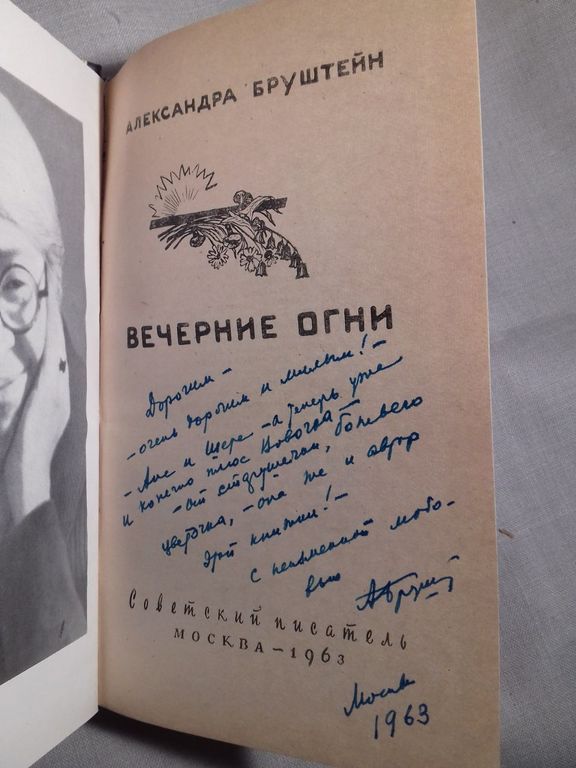 АЛЕКСАНДРА БРУШТЕЙН
ВЕЧЕРНИЕ ОГНИ
Дорогим –
– очень дорогим и милым! –
– Асе и Шере – а теперь уже
и конечно плюс
– от старушечки, божьего
цветочка, – она же и автор
этой книжки! –
с неизменной любо-
вью АБруш
Советский писатель
МОСКВА – 1963
Москва
1963